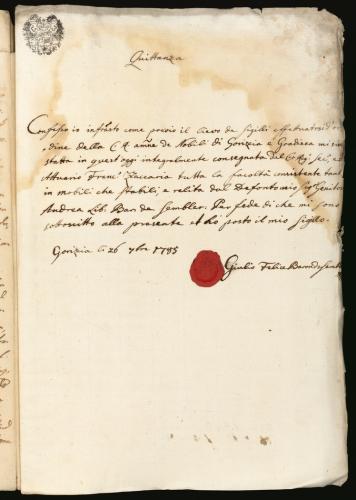 Quittanza
Confesso io infrãtto come previo il Levo de Sigili effettuato
dine della C. R. de Nobili di Gorizia e Gradisca mi
stata in quest'oggi integralmente consegnata dal
Attuario Franc. Zaccaria tutta la facoltà consistente
in mobili che stabili e relita dal Defonto mio
Andrea Lib. Bar. de Sembler. Per fede di che mi sono
sottoscritto alla presente ed ho posto il mio sigilo.
Gorizia li 26 1785
Giulio Felice Baron de